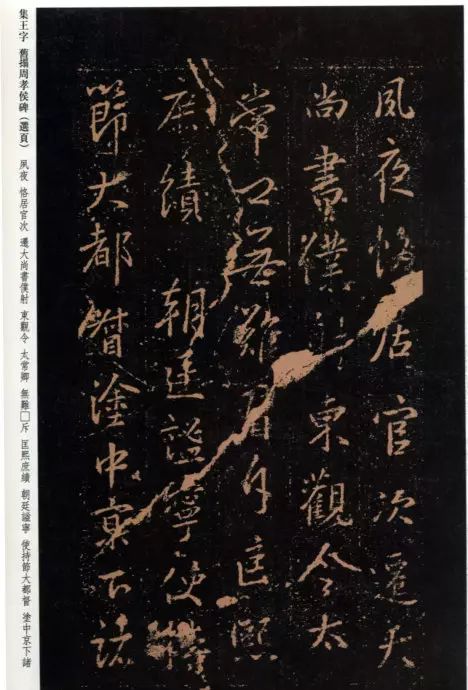 集王字 舊搨周孝侯碑(選頁) 夙夜 恪居官次 遷大尚書僕射 東觀令 太常卿 無難□斥 匡熙庶績 朝廷謐寧 使持節大都督 塗中京下諸
夙夜恪居官次遷大
尚書僕射東觀令太
常卿無難 斥匡熙
庶績 朝廷謐寧使持
節大都督塗中京下諸